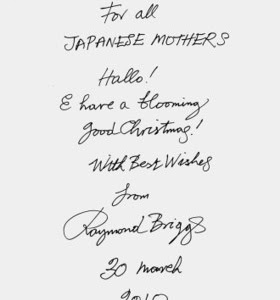 For all
JAPANESE MOTHERS
Hallo!
& have a blooming
good Christmas!
With Best Wishes
from
Raymond Briggs
30 march